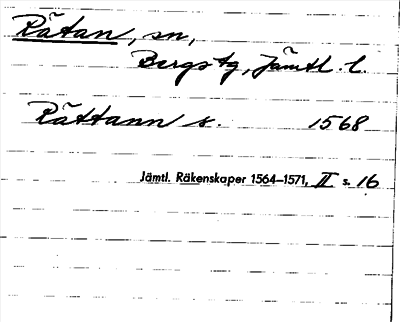 Rätan, sn,
Bergs tg, Jämtl. l.
Rättann s. 1568
Jämtl. Räkenskaper 1564–1571, II s. 16